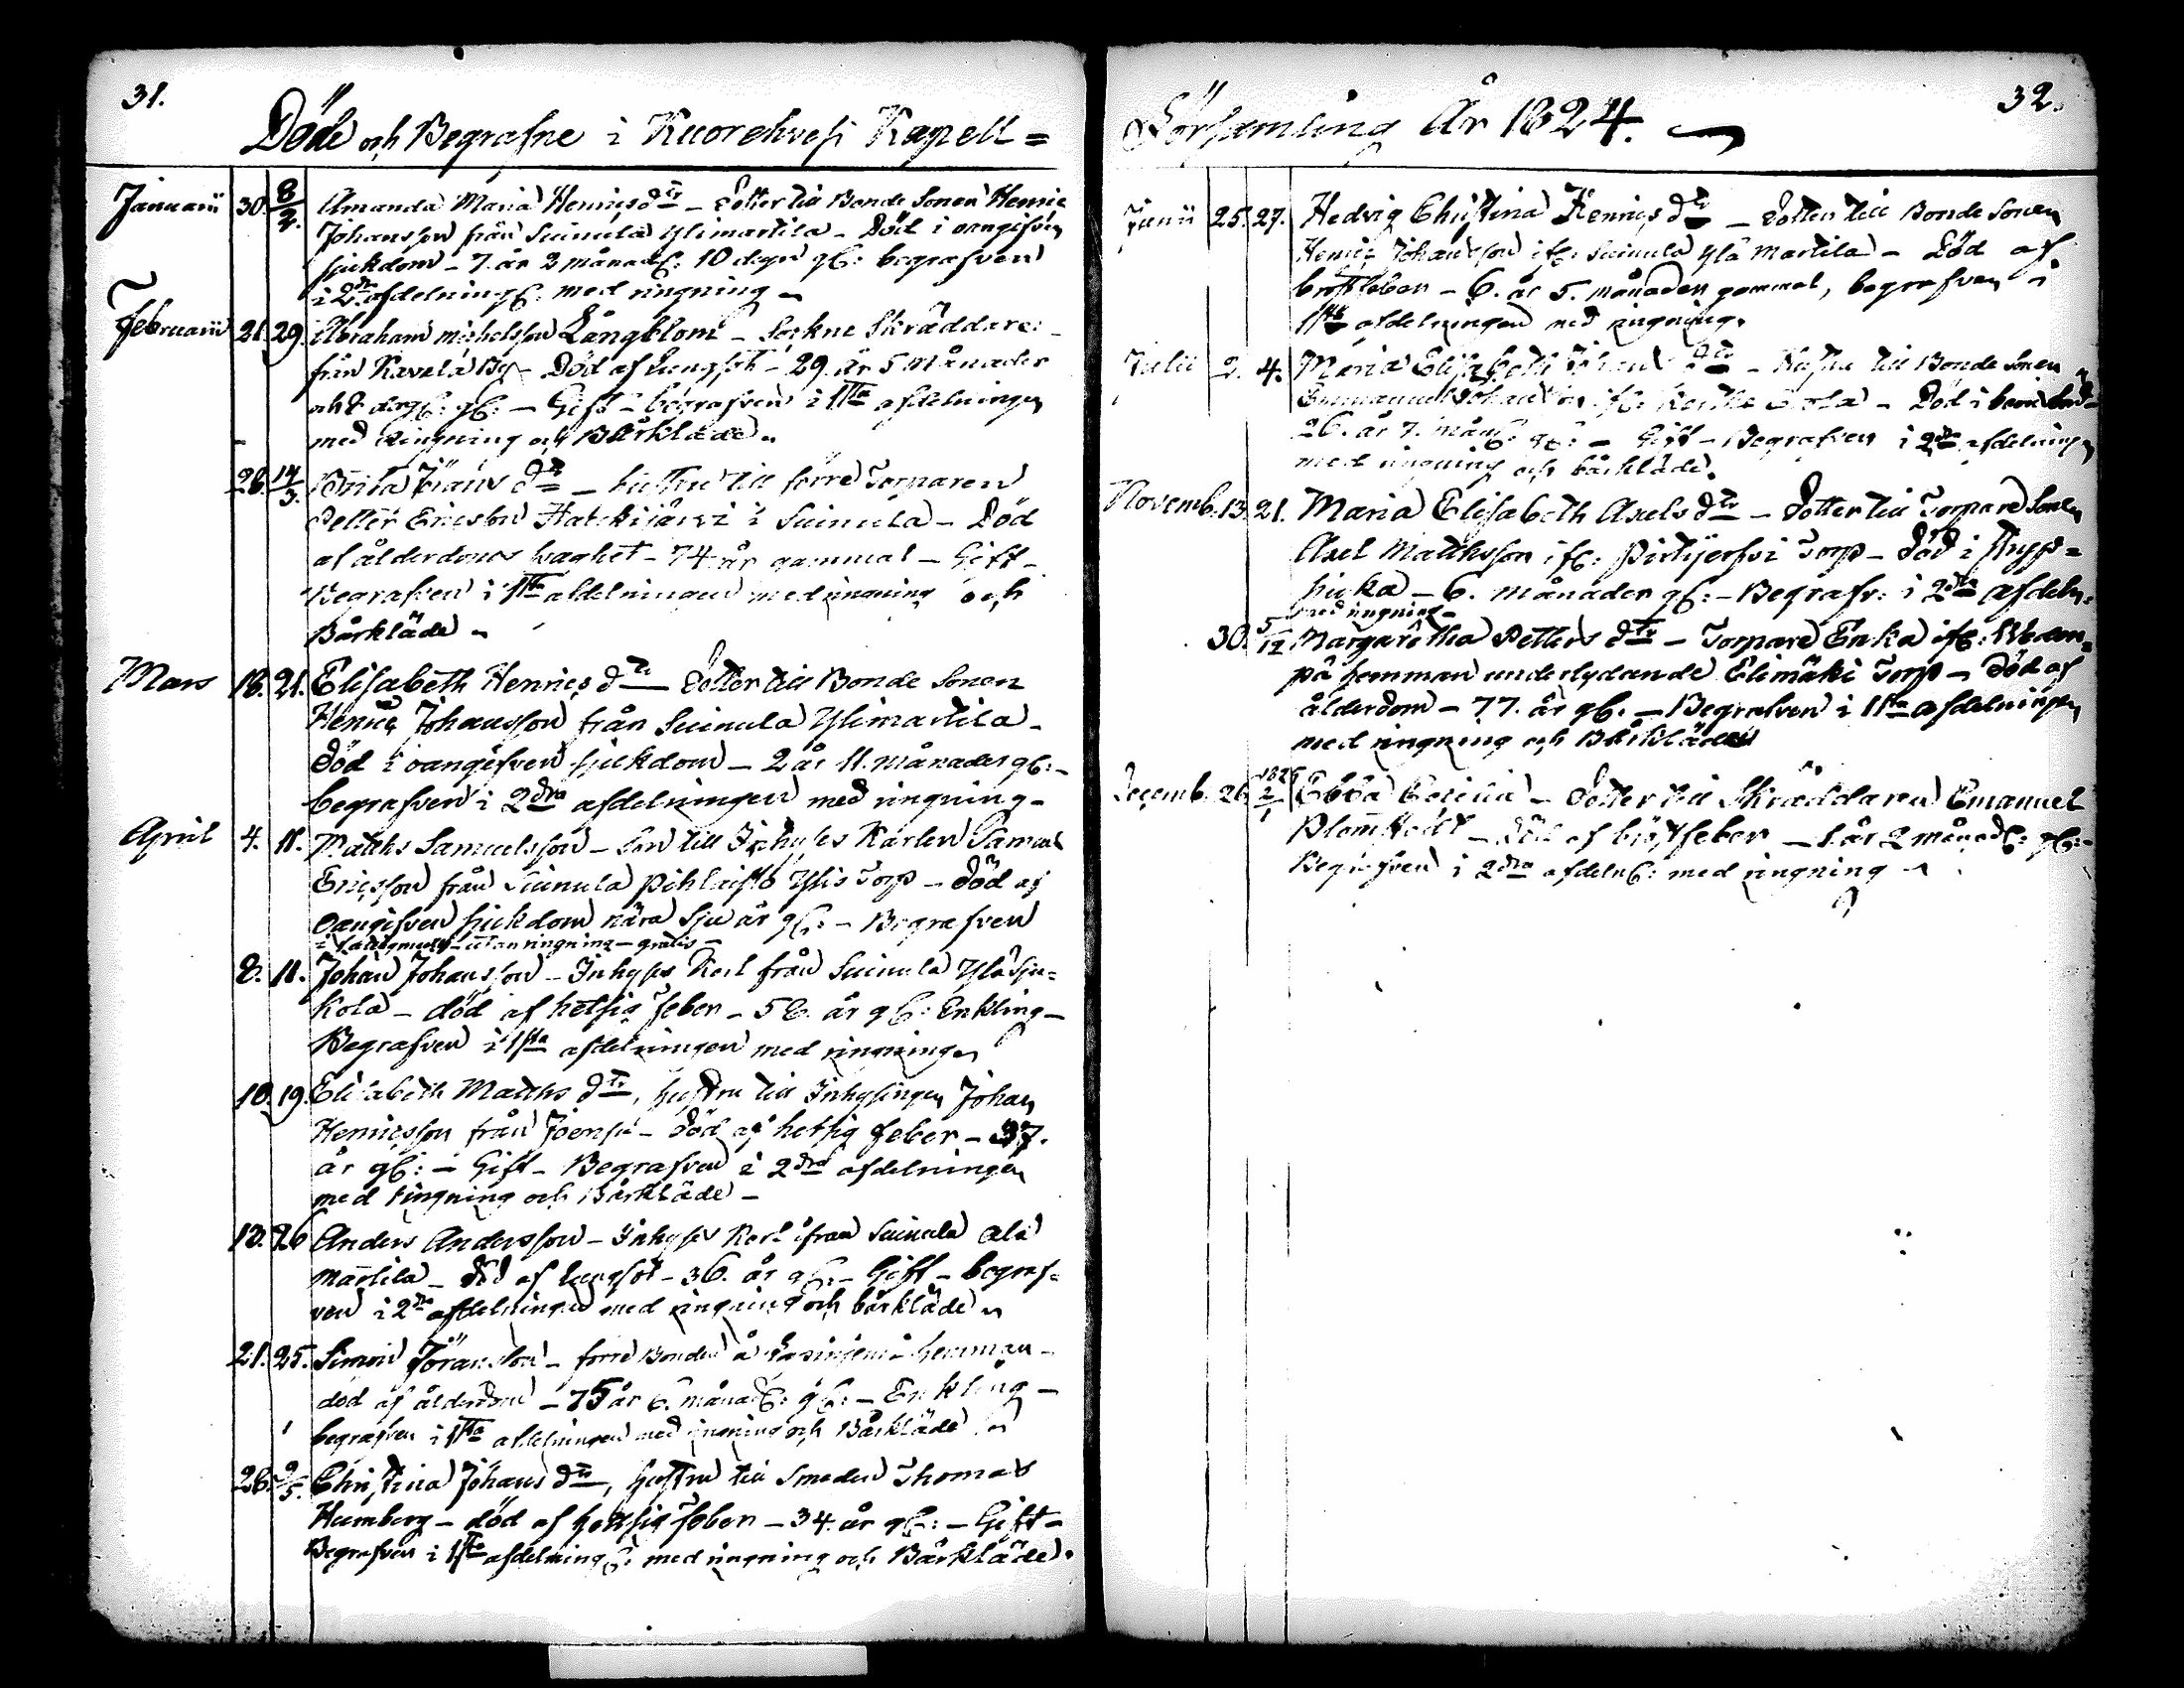 31.
Döde och Begrafne i Kuorehvesi Kapell=
Januarii 30. 8/2. Amanda Maria Henricsdtr – Dotter till Bonde Sonen Henric
Johansson från Suinula Ylimartila – Död i oangifven
sjukdom – 7 år 2 månad: 10 dagar gl: begrafven
i 2dra afdelning: med ringning –
Februarii 21. 29. Abraham Michelsson Långblom – Sockne Skräddare
från Kavala By – Död af Lungsot – 29 år 5 Månader
och 8 dag: gl: – Gift – begrafven i 1sta afdelningen
med Ringning och Bårkläde.
28. 14/3. Brita Jörans dtr – hustru till förre Torparen
Petter Ericsson Hatckijärvi i Suinula – Död
af ålderdoms svaghet – 74 år gammal – Gift –
Begrafven i 1sta afdelningen med ringning och
Bårkläde –
Mars 18. 21. Elisabeth Henrics dtr – Dotter till Bonde Sonen
Henric Johansson från Suinula Ylimartila –
Död i oangifven sjukdom – 2 år 11. Månader gl: –
begrafven i 2dra afdelningen med ringning –
April 4. 11. Matths Samuelsson – Son till Inhyses Karlen Samuel
Ericsson från Suinula Pihlaisto Ylis Torp – Död af
oangifven sjukdom nära sju år gl: – Begrafven
– utan ringning – gratis –
8. 11. Johan Johansson – Inhyses Karl från Suinula Yläsju=
kola – död af hetsig feber – 56. år gl: Enkling –
Begrafven i 1sta afdelningen med ringning
10. 19. Elisabeth Matths dtr, hustru till Inhysingen Johan
Henricsson från Joensu – Död af hetsig feber – 37.
år gl: – Gift – Begrafven i 2dra afdelningen
med ringning och Bårkläde –
13. 26 Anders Andersson – Inhyses Karl ifrån Suinula Ala
Martila – Död af Lungsot – 36. år gl: – Gift – begraf=
ven i 2dra afdelningen med ringning och bårkläde
21. 25. Simon Jöransson – förre Bonden å hemman –
död af ålderdom – 75 år 6. månad: gl: – Enkling –
begrafven i 1sta afdelningen med ringning och Bårkläde
26. 2/5. Christina Johans dtr, hustru till Smeden Thomas
Humberg – död af hetsig feber – 34. år gl: – Gift –
Begrafven i 1sta afdelning: med ringning och Bårkläde.
32.
Församling År 1824.
Junii 25. 27. Hedvig Christina Henrics dtr – Dotter till Bonde Sonen
Henric Johansson if: Suinula Ylä Martila – Död af
bröstfeber – 6. år 5. månader gammal, begrafven i
1sta afdelningen med ringning.
Julii 2. 4. Maria Elisabeth Johans dtr – Hustru till Bonde Sonen
Emmanuel Johansson if: – Död i barnsbörd –
26. år 7. mån: gl: – Gift – Begrafven i 2dra afdelningen
med ringning och bårkläde.
Novemb. 13. 21. Maria Elisabeth Axels dtr – Dotter till Torpare Sonen
Axel Mattsson if: Pirttijerfvi Torp – död i Stryp=
sjuka – 6. månader gl: – Begrafv: i 2dra afdeln:
med ringning –
30. 5/12 Margaretha Petters dtr – Torpare Enka if:
på hemman underlydande Elimäki Torp – Död af
ålderdom – 77. år gl. – Begrafven i 1sta afdelningen
med ringning och Bårkläde
Decemb. 26 2/1 Ebba Cecilia – Dotter till Skräddaren Emanuel
Blomstedt – Död af bröstfeber – 1 år 2 månad: gl: –
Begrafven i 2dra afdeln: med ringning